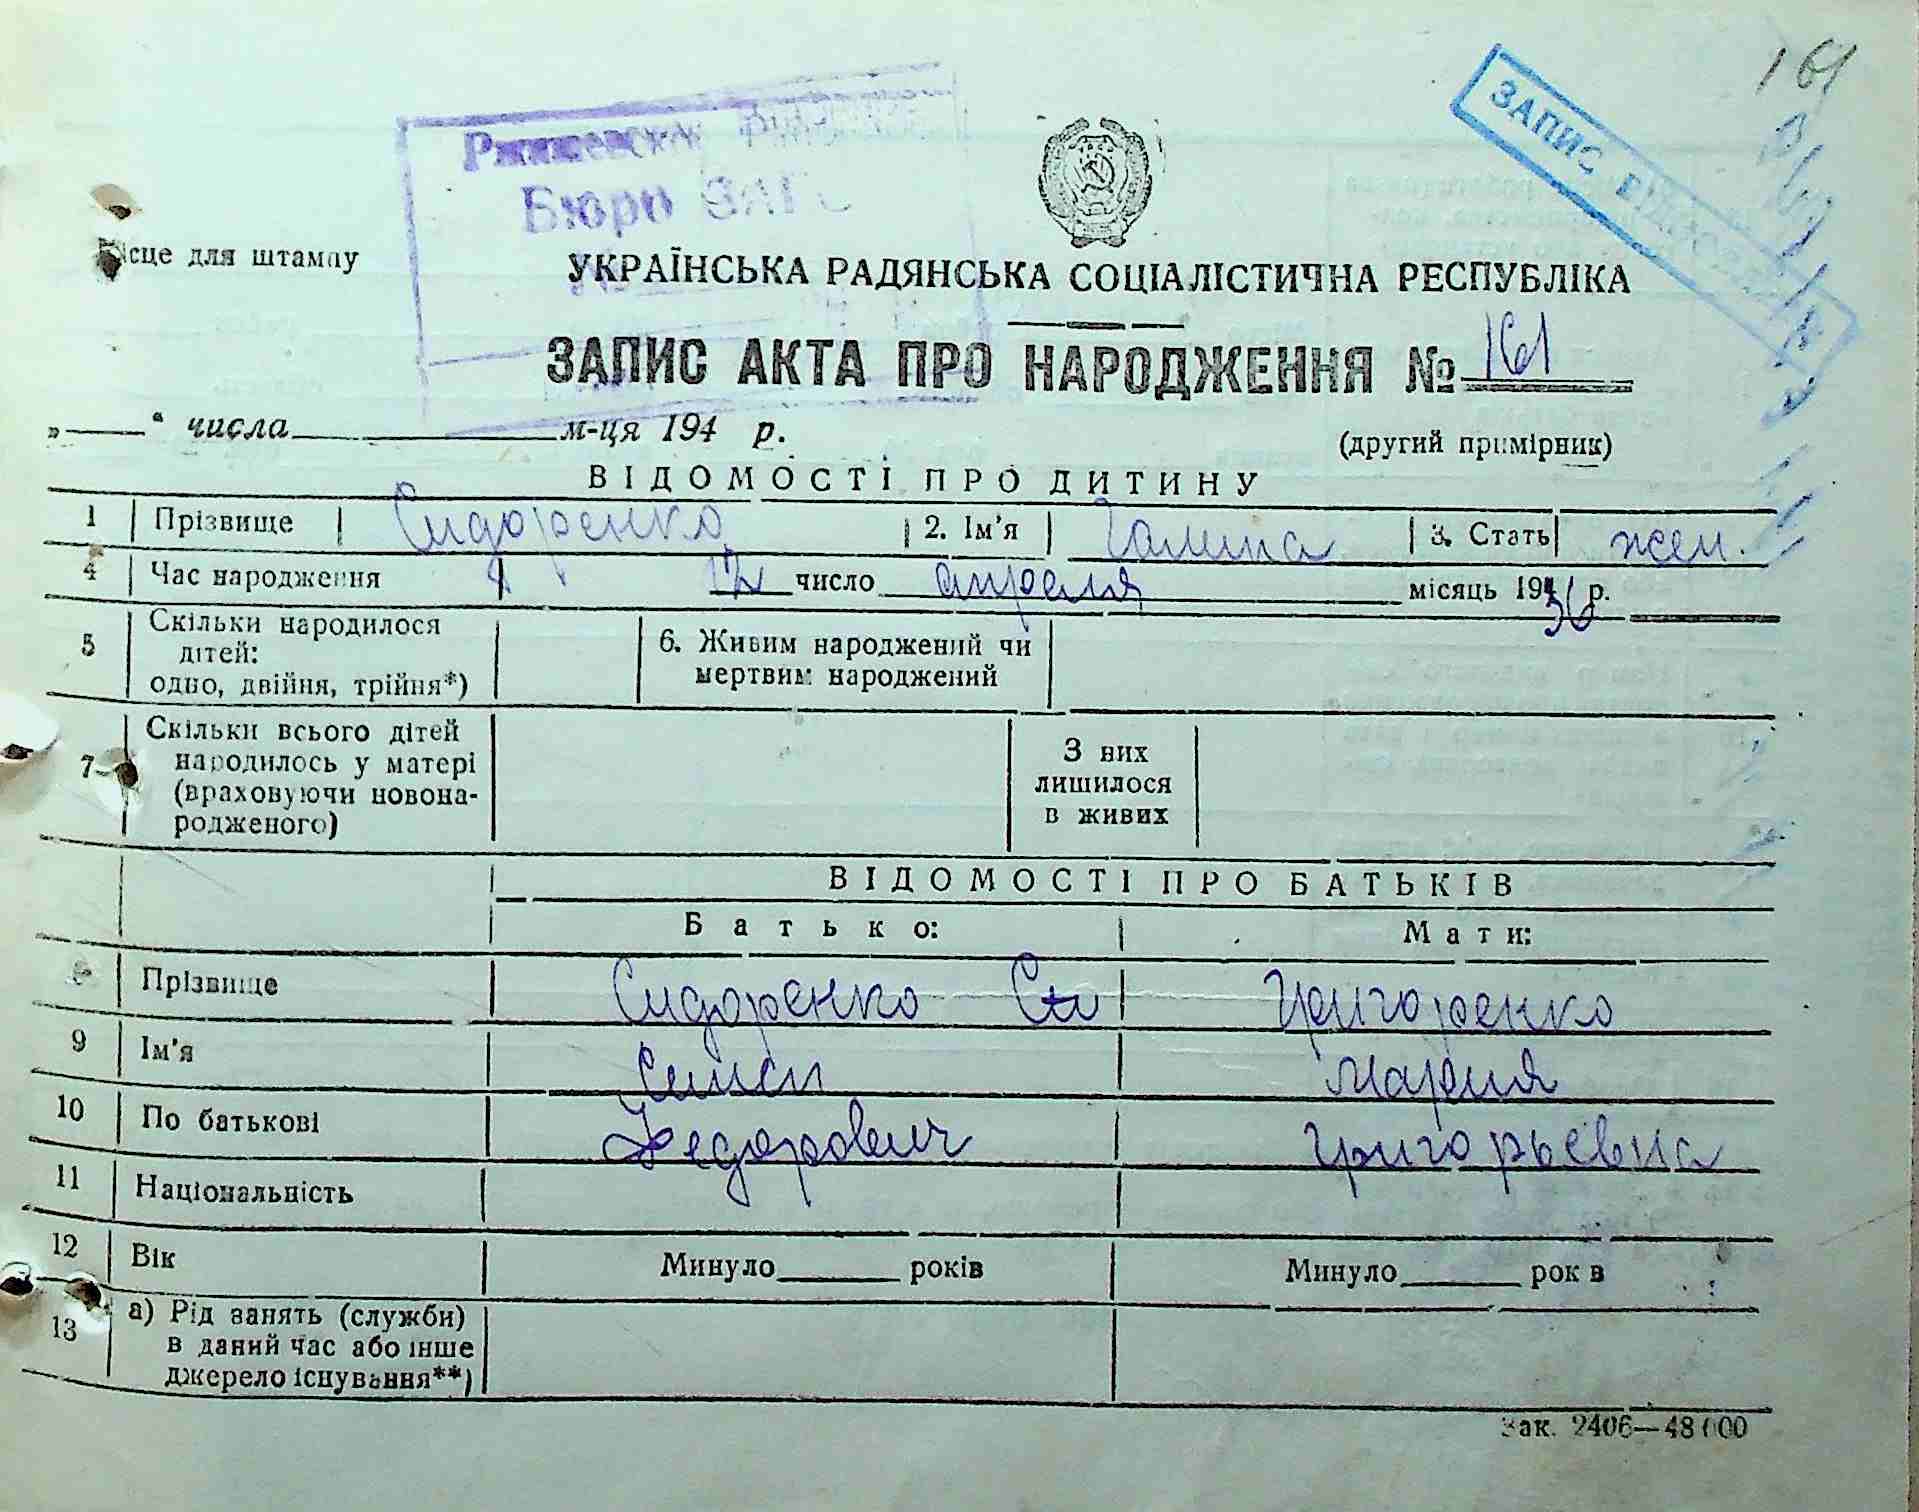 161
ЗАПИС
Бюро ЗАГС
Місце для штампу
УКРАЇНСЬКА РАДЯНСЬКА СОЦІАЛІСТИЧНА РЕСПУБЛІКА
ЗАПИС АКТА ПРО НАРОДЖЕННЯ № 161
„ “ числа м-ця 194 р.
(другий примірник)
ВІДОМОСТІ ПРО ДИТИНУ
1 Прізвище Сидоренко 2. Ім'я Галина 3. Стать жен.
4 Час народження 12 число апреля місяць 1936 р.
5 Скільки народилося дітей: одно, двійня, трійня*) 6. Живим народжений чи мертвим народжений
7 Скільки всього дітей народилось у матері (враховуючи новонародженого) З них лишилося в живих
ВІДОМОСТІ ПРО БАТЬКІВ
Батько: Мати:
8 Прізвище Сидоренко Григоренко
9 Ім'я Мария
10 По батькові Федорович Григорьевна
11 Національність
12 Вік Минуло років Минуло рок в
13 а) Рід занять (служби) в даний час або інше джерело існування**)
Зак. 2406—48000